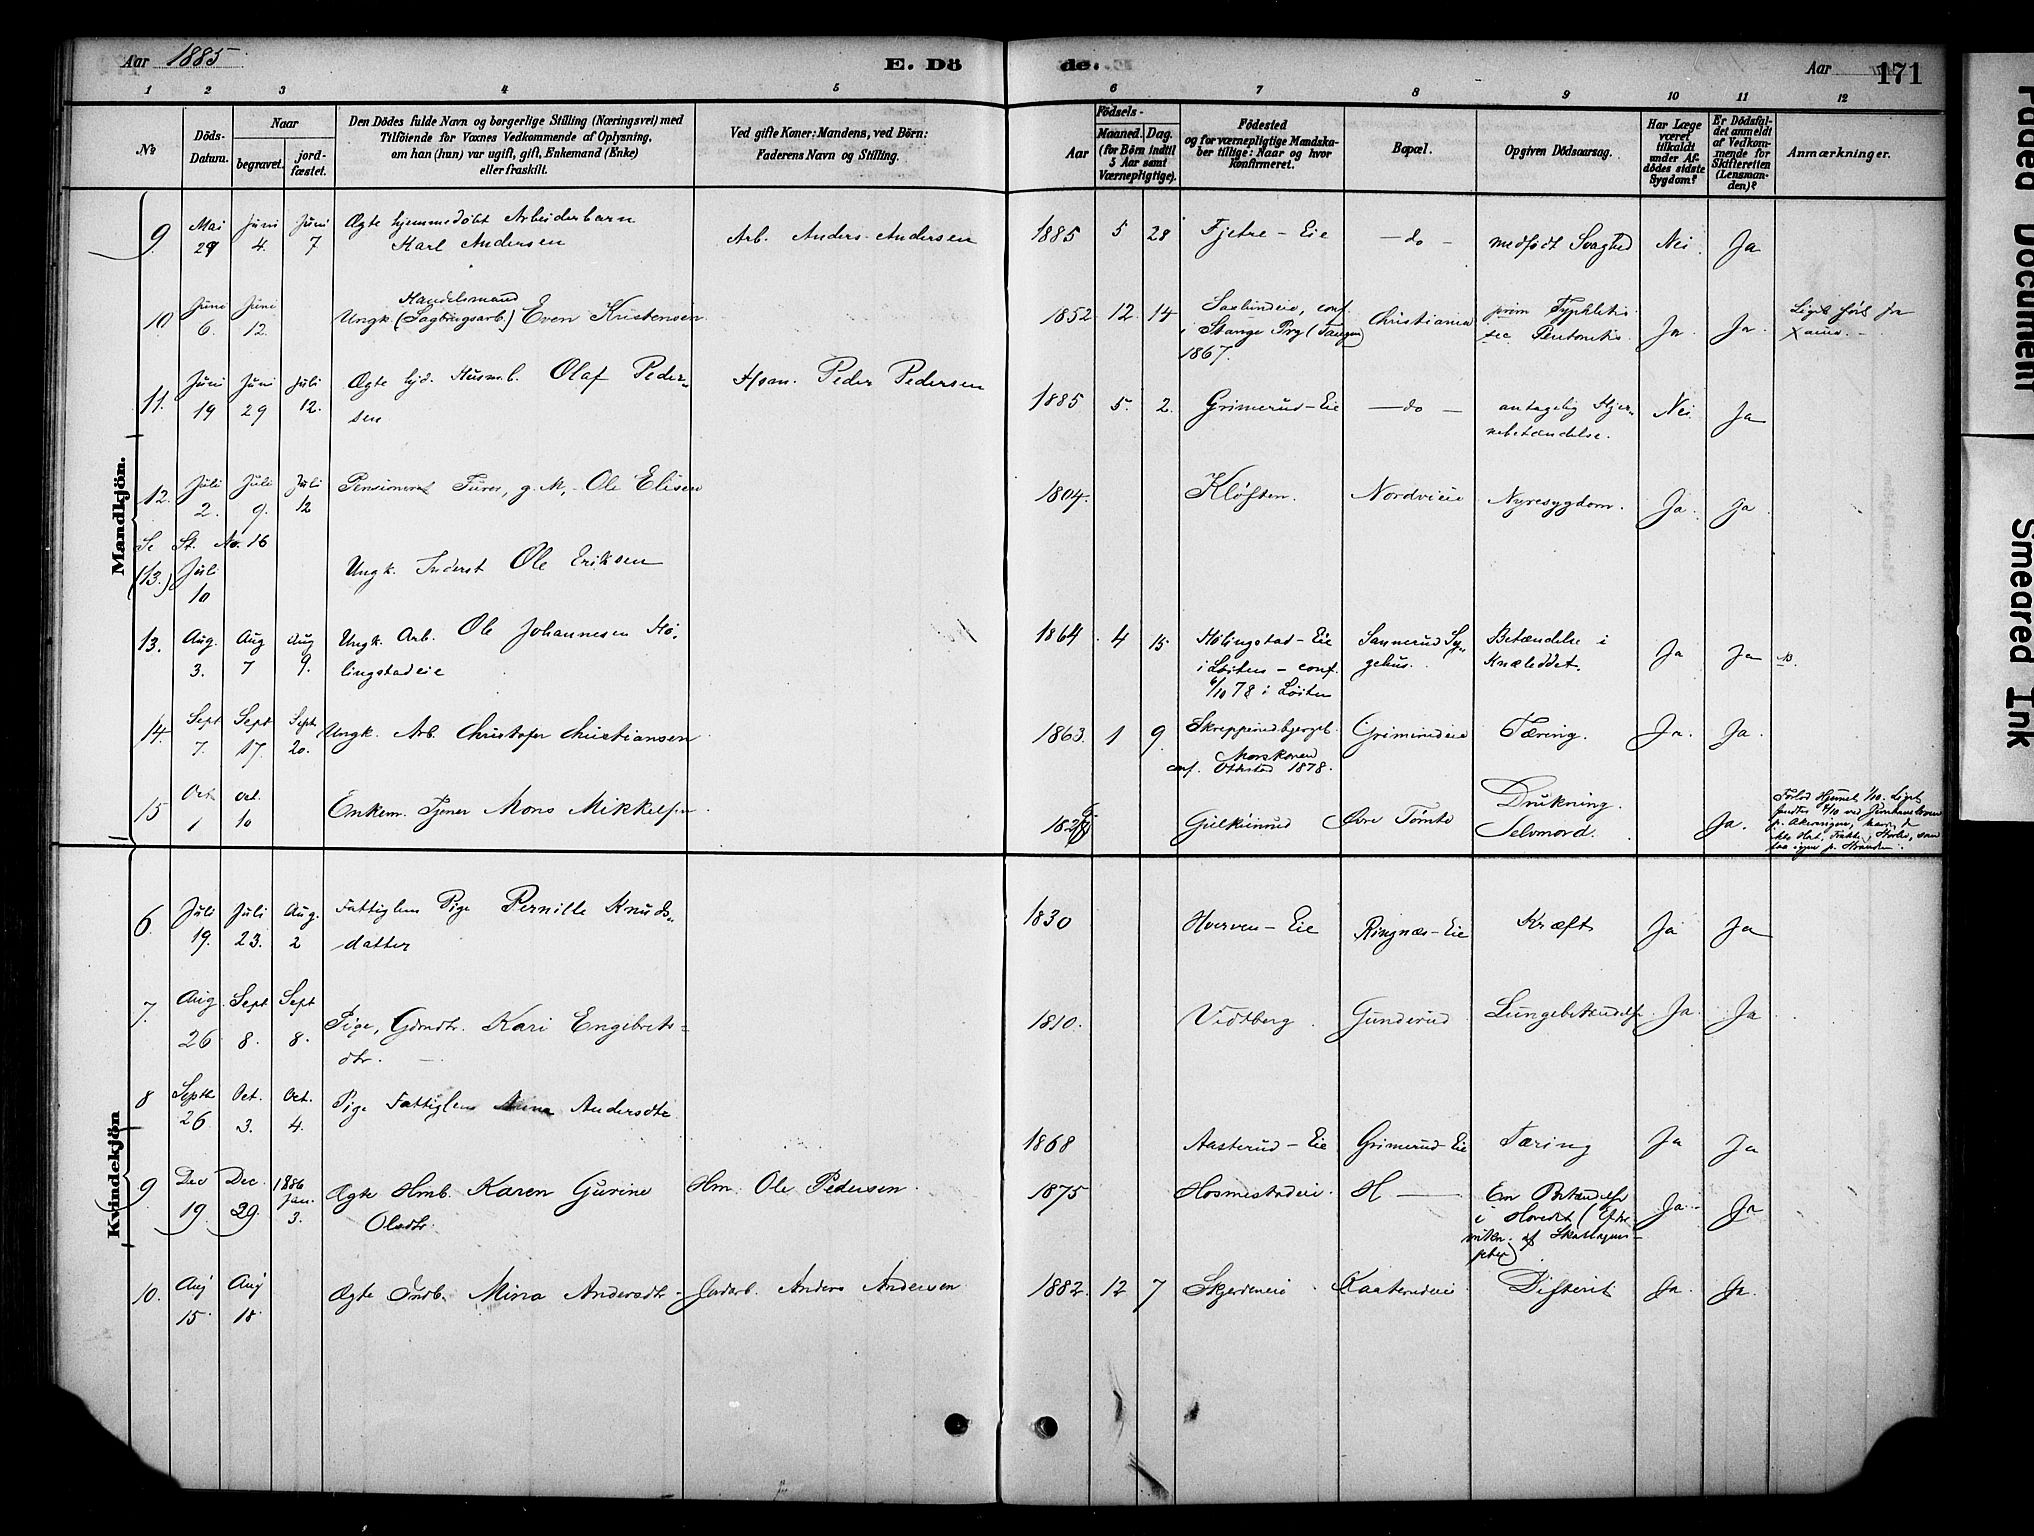 Aar 1885 E. Dö de. Aar 171
1 2 3 4 5 6 7 8 9 10 11 12
No
Döds-Datum.
Naar
begravet. jord-fæstet.
Den Dödes fulde Navn og borgerlige Stilling (Næringsvei) med
Tilföiende for Voxnes Vedkommende af Oplysning,
om han (hun) var ugift, gift, Enkemand (Enke)
eller fraskilt.
Ved gifte Koner: Mandens, ved Börn:
Faderens Navn og Stilling.
Födsels-
Aar Maaned. Dag.
(for Börn indtil
5 Aar samt
Værnepligtige).
Födested
og for værnepligtige Mandska-
ber tillige: Naar og hvor
konfirmeret.
Bopæl.
Opgiven Dödsaarsag.
Har Læge
været
tilkaldt
under Af-
dödes sidste
Sygdom?
Er Dödsfal-
det anmeldt
af Vedkom-
mende for
Skifteretten
(Lensman-
den)?
Anmærkninger.
Mandkjön.
9. Mai 29 Juni 4. Juni 7 Ægte hjemmedöbt Arbeiderbarn
Karl Andersen Arb. Anders Andersen 1885 5 28 Fjetre-Eie -do- medfödt Svaghed Nei Ja
Handelsmand
10 Juni 6. Juni 12. Ungk. (Sagbrugsarb.) Even Kristensen 1852 12 14 conf.
i Stange Prg (Tangen) Christiania prim Typhlitis Ja. Ja.
1867. sec Peritonitis.
11. Juni 19 Juni 29 Juli 12. Ægte hjd. Husm.b. Olaf Peder-
sen Hsm. Peder Pedersen 1885 5. 2. Grimerud-Eie -do- antagelig Hjer-
nebetændelse. Nei Ja
12. Juli 2. Juli 9. Juli 12 Pensioneret Furer, g. M, Ole Elisen 1804. Kløften. Nordvieie Nyresygdom. Ja. Ja.
Se St. No. 16
(13.) Juli 10 Ungk. Inderst Ole Eriksen
13. Aug. 3. Aug 7 Aug 9. Ungk. Arb. Ole Johannesen Hø-
lingstadeie 1864 4 15 Hølingstad-Eie
i Løiten - conf.
6/10 78 i Løiten Sannerud Sy-
gehus. Betændelse i
Knæleddet. Ja Ja
14. Sept 7. Sept 17. Sept 20. Ungk. Arb. Christofer Christiansen 1863. 1 9.
Morskoven
conf. Ottestad 1878. Grimerudeie Tæring. Ja. Ja.
15 Oct 1 Oct. 10 Enkem. Tjener Mons Mikkelsen Øvre Tømte Drukning.
Selvmord. Ja. Forlod Hjemmet 1/10. Liget
Kvindekjön
6. Juli 19. Juli 23. Aug. 2 Fattiglem Pige Pernille Knuds-
datter 1830 Hverven-Eie Ringnæs-Eie Kræft Ja Ja
7. Aug 26 Sept 8. Sept 8. Pige, Gdmdtr. Kari Engebrets-
dtr. 1810. Vidtberg. Gunderud Lungebetændelse Ja. Ja
8 Septb 26 Oct. 3. Oct. 4. Pige Fattiglem Anna Andersdtr 1868 Aasterud-Eie Grimerud-Eie Tæring Ja Ja
9 Dec 19. Dec. 29. 1886 Jan. 3. Ægte Hmb. Karen Gurine
Olsdtr. Hm. Ole Pedersen. 1875 Hosmestadeie. H En Betændelse
i Hovedet (Efter- Ja. Ja
virkn. af Skarlagens-
feber)
10. Aug 15 Aug 18 Ægte Indb. Mina Andersdtr - Jordarb. Anders Andersen 1882. 12 7 Skjerdeneie Kaaterudeie Difterit Ja. Ja.
Faded Document
Smeared Ink